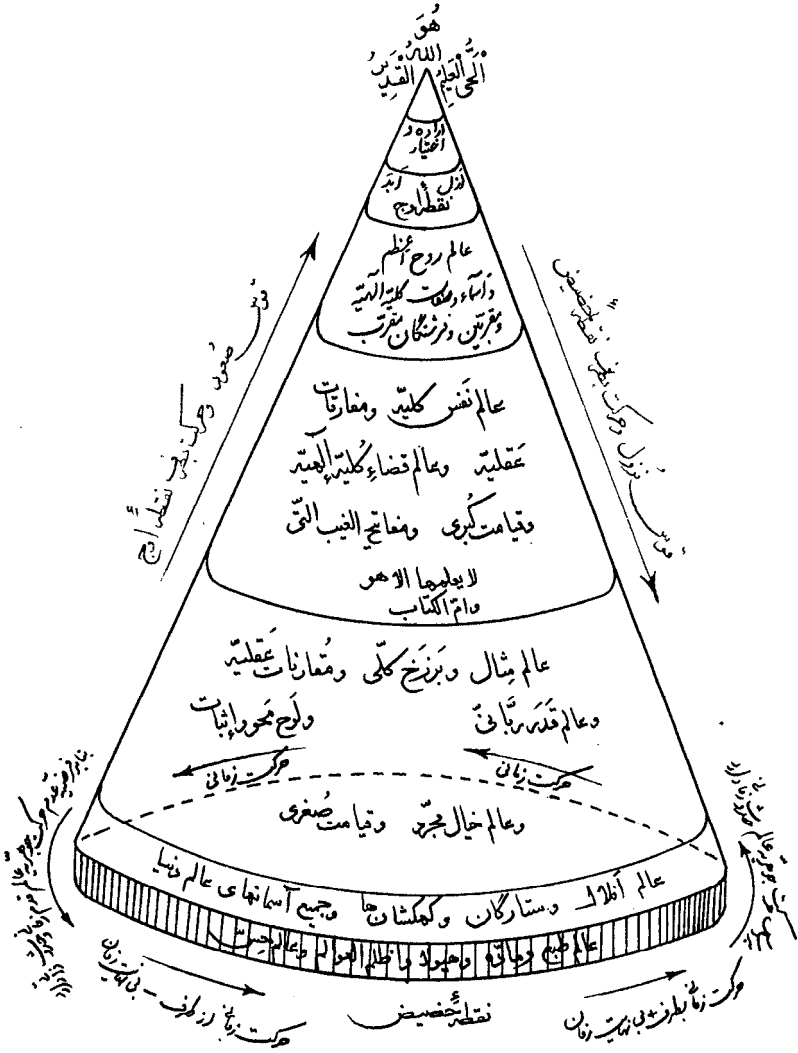 هُوَ
اللهُ
الْحَیُّ الْعَلِیمُ الْقِدِّیسُ
اراده و
اختیار
ازل ابد
نقطهٔ اوج
عالم روح اعظم
و اسماء و صفات کلیّه الهیّه
و مقربین و فرشتگان مقرّب
عالم نَفس کلیّه ومفارقات
عَقلیّه وعالم قضاءِ کُلیّه إلهیّه
وقیامت کُبری ومفاتیح الغیب الّتی
لا یعلمها الاّ هو
و امّ الکتاب
عالم مِثال وبَرزَخ کلّی و مُقارنات عَقلیّه
وعالم قَدَر ربّانیّ ولَوح مَحو وإثبات
حرکت زمانی حرکت زمانی
وعالم خیال مجرّد وقیامت صُغری
عالم أفلاک وستارگان وکهکشان ها وجمیع آسمانهای عالم دنیا
عالم طبع ومادّه وهیولا واظلم العوالم وعالم حِسّ
نقطهٔ حَضیض
قوس صُعود وحرکت بطرف نقطهٔ أوج
قوس نُزول وحرکت بطرف نقطهٔ حضیض
حرکت زمانی از طرف − بی نهایت زمان
حرکت زمانی بطرف + بی نهایت زمان